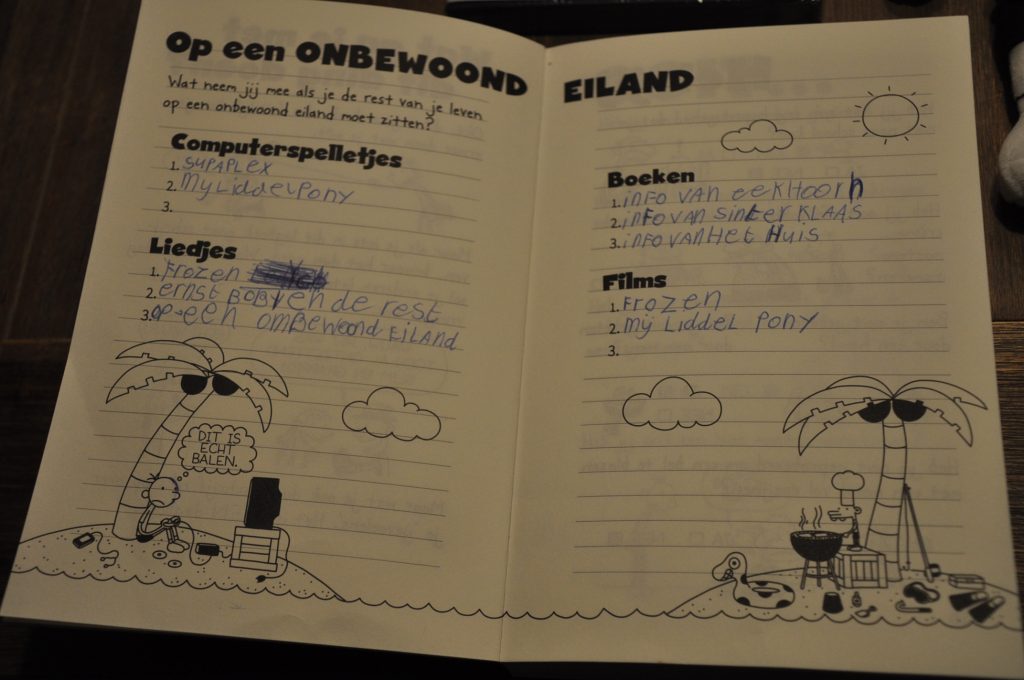 Op een ONBEWOOND
Wat neem jij mee als je de rest van je leven
op een onbewoond eiland moet zitten?
Computerspelletjes
1. SUPAPLEX
2. My LiddelPONY
3.
Liedjes
1. Frozen
2. ernst BOBY en de rest
3. op een omBewoond EILAND
DIT IS
ECHT
BALEN.
EILAND
Boeken
1. inFO VAN eekHoorn
2. inFo van sinter KLAAS
3. info VAN Het Huis
Films
1. Frozen
2. my LiddeL PONY
3.